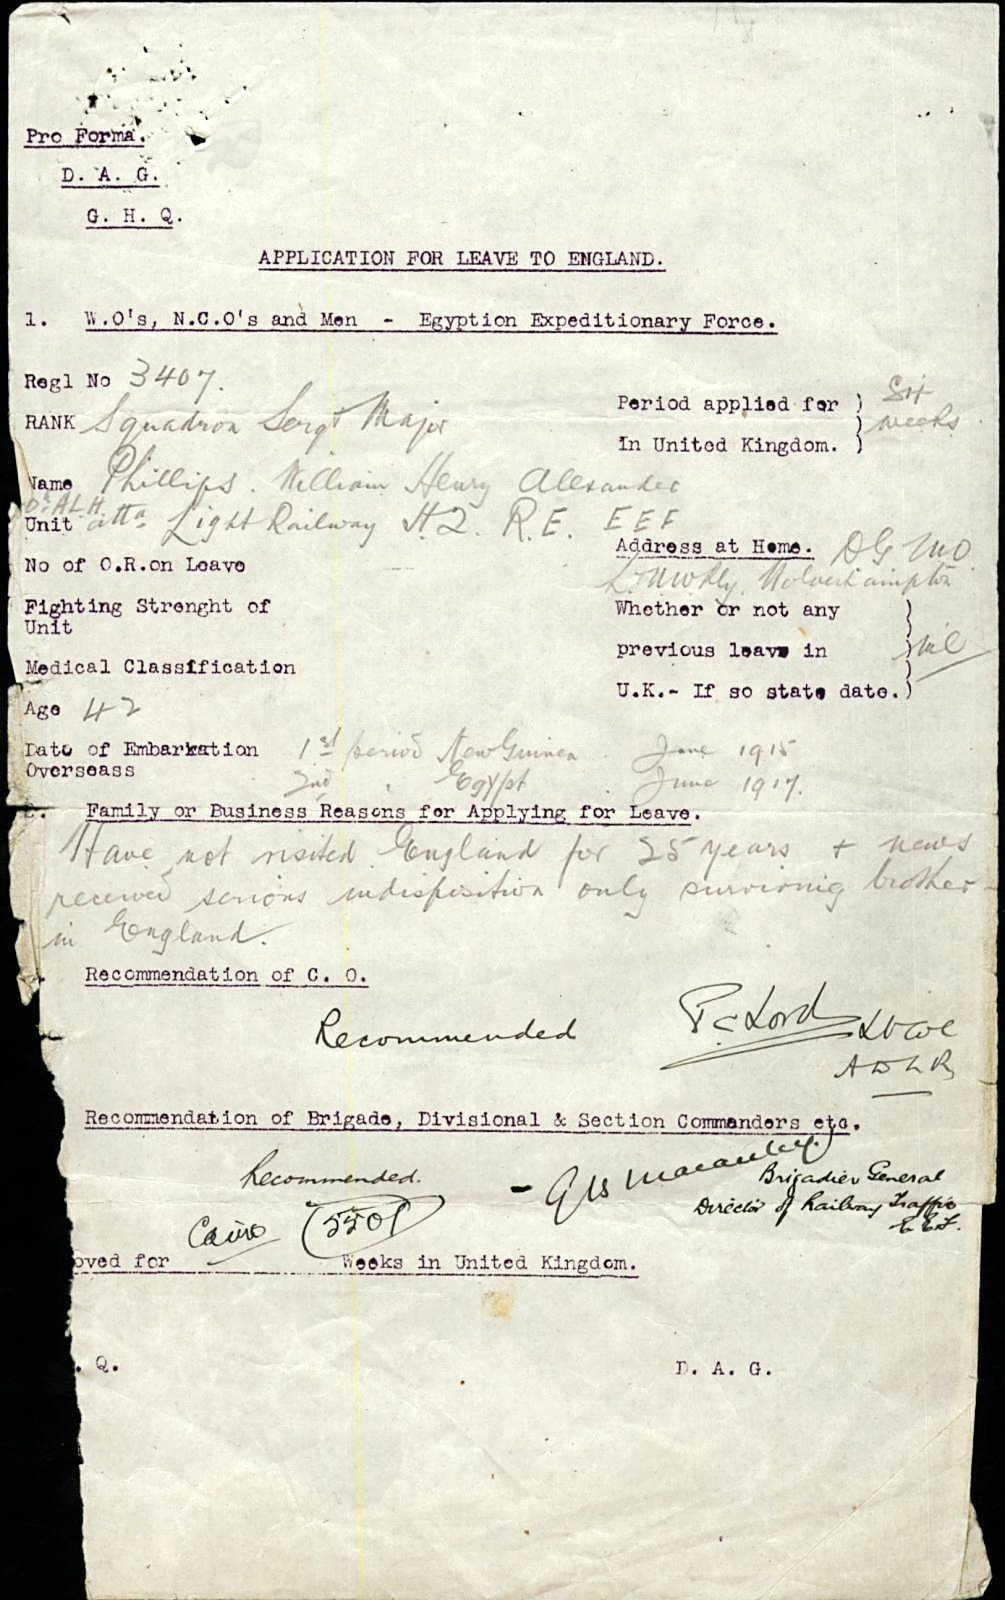 Pro Forma.
D. A. G.
G. H. Q.
APPLICATION FOR LEAVE TO ENGLAND.
1. W.O's, N.C.O's and Men - Egyption Expeditionary Force.
Regl No 3407.
RANK Squadron Sergt Major
Period applied for ) Six
In United Kingdom. ) weeks
Name Phillips. William Henry Alexander
Unit atta Light Railway H.Q. R.E. EEF
Address at Home. DG MO
L. & NW Rly, Wolverhampton
No of O.R.on Leave
Fighting Strenght of
Unit
Whether or not any
previous leave in nil
U.K.- If so state date.)
Medical Classification
Age 42
Date of Embarkation 1st period New Guinea June 1915
Overseass 2nd " Egypt June 1917.
2. Family or Business Reasons for Applying for Leave.
Have not visited England for 25 years + news
received serious indisposition only surviving brother
in England.
Recommendation of C. O.
Recommended
P.C Lord Lt Col
A D L R
Recommendation of Brigade, Divisional & Section Commanders etc.
Recommended. - G B Macauley
Brigadier General
Director of Railway Traffic
E.E.F.
Cairo 5501
oved for Weeks in United Kingdom.
. Q. D. A. G.